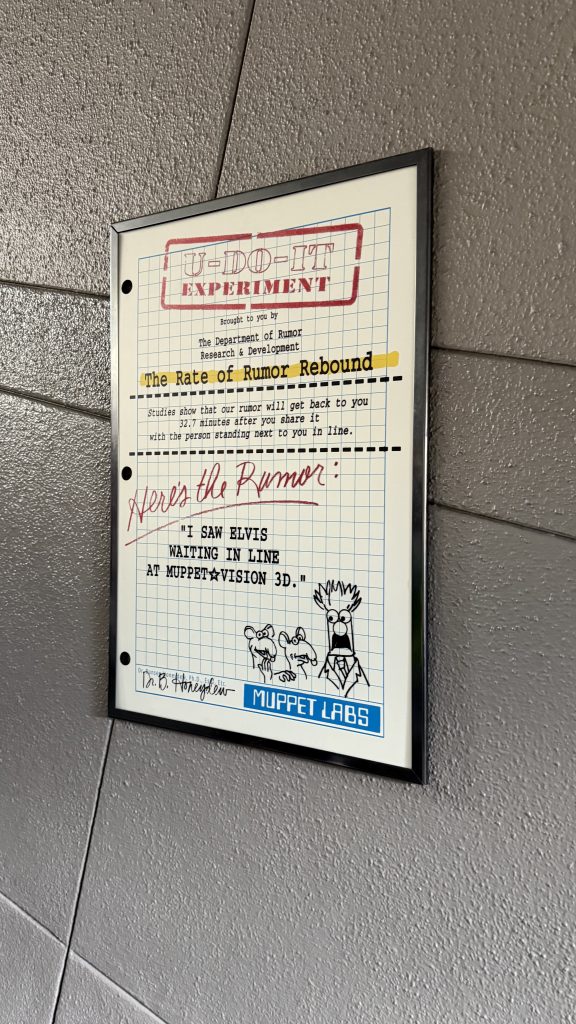 U-DO-IT
EXPERIMENT
Brought to you by
The Department of Rumor
Research & Development
The Rate of Rumor Rebound
Studies show that our rumor will get back to you
32.7 minutes after you share it
with the person standing next to you in line.
Here's the Rumor:
"I SAW ELVIS
WAITING IN LINE
AT MUPPET☆VISION 3D."
Dr. B. Honeydew
MUPPET LABS